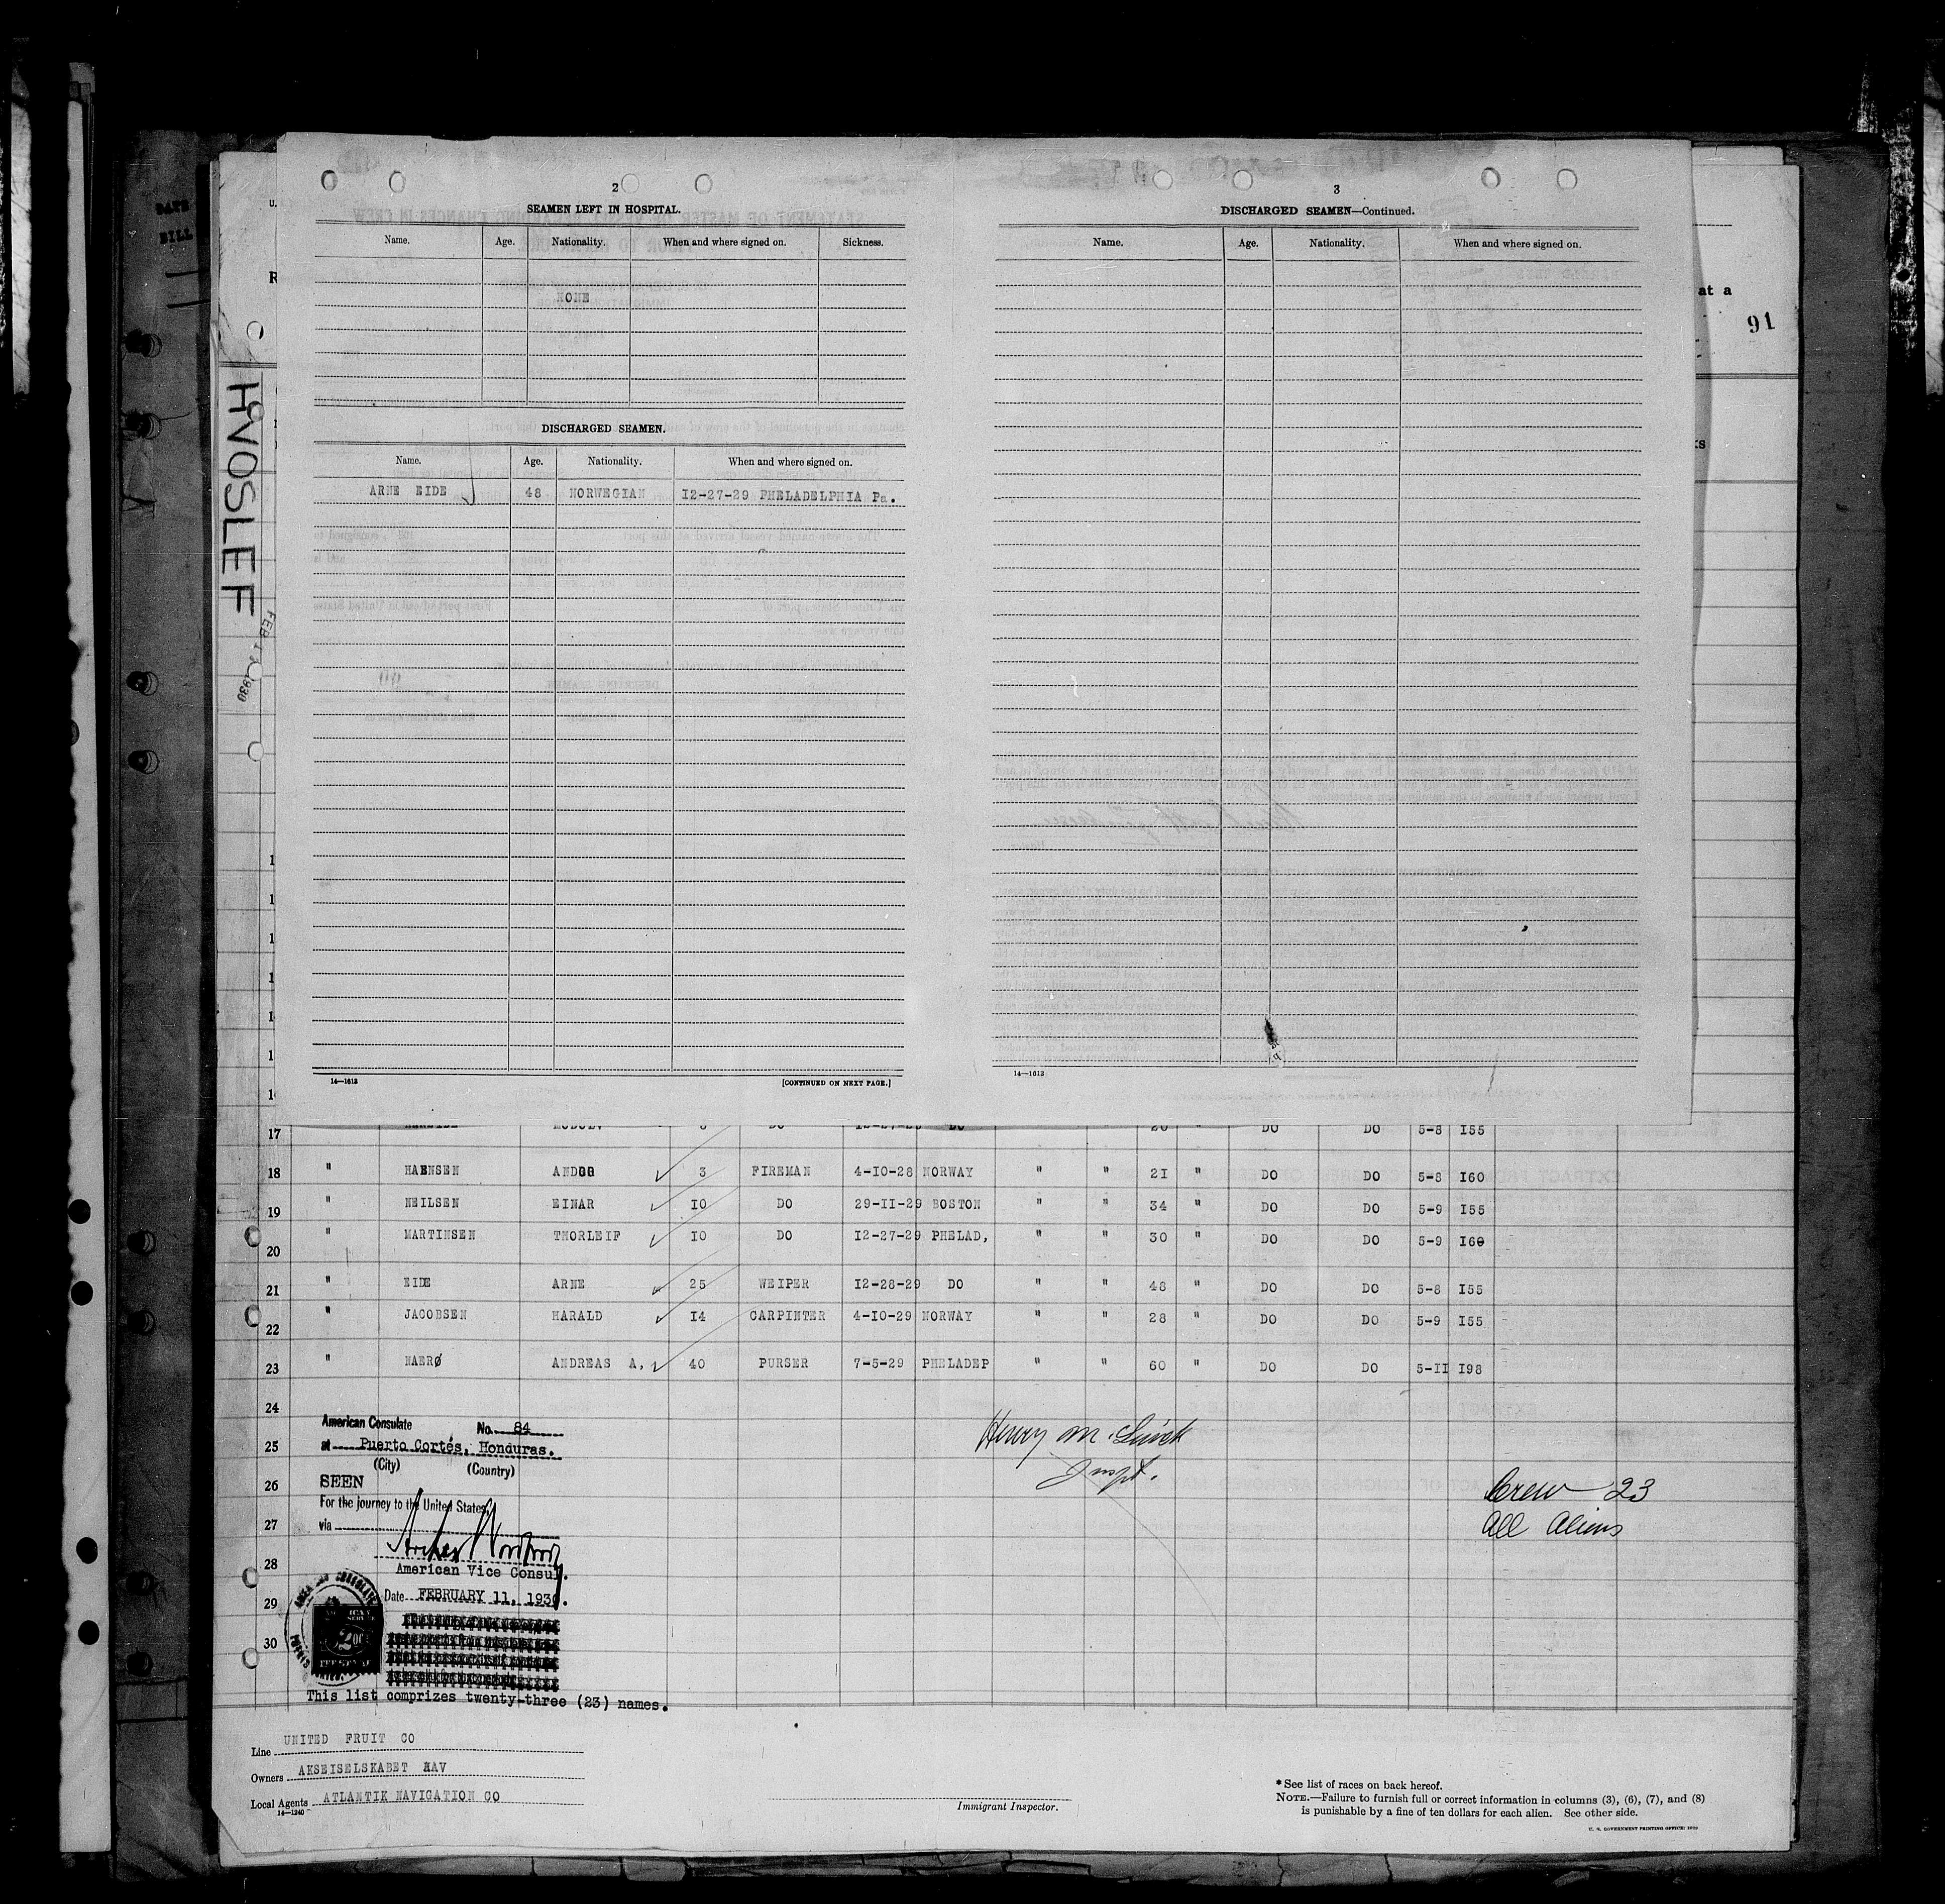 DATE
BILL
U.
R
at a
91
ts
HVOSLEF
FEB 1 1930
2
SEAMEN LEFT IN HOSPITAL.
Name. Age. Nationality. When and where signed on. Sickness.
NONE
DISCHARGED SEAMEN.
Name. Age. Nationality. When and where signed on.
ARNE EIDE 48 NORWEGIAN 12-27-29 PHELADELPHIA Pa.
14—1613 [CONTINUED ON NEXT PAGE.]
3
DISCHARGED SEAMEN—Continued.
Name. Age. Nationality. When and where signed on.
14—1613
17 DO 20 " DO DO 5-8 155
18 " HAENSEN 3 FIREMAN 4-10-28 NORWAY " " 21 " DO DO 5-8 160
19 " NEILSEN EINAR 10 DO 29-11-29 BOSTON " " 34 " DO DO 5-9 155
20 " MARTINSEN THORLEIF 10 DO 12-27-29 PHELAD, " " 30 " DO DO 5-9 160
21 " EIDE ARNE 25 WEIPER 12-28-29 DO " " 48 " DO DO 5-8 155
22 " JACOBSEN HARALD 14 CARPINTER 4-10-29 NORWAY " " 28 " DO DO 5-9 155
23 " NAERØ ANDREAS A, 40 PURSER 7-5-29 PHELADEP " " 60 " DO DO 5-11 198
24
25
26
27
28
29
30
American Consulate No. 84
at Puerto Cortés, Honduras.
(City) (Country)
SEEN
For the journey to the United States,
via
American Vice Consul.
Date FEBRUARY 11, 1930.
This list comprizes twenty-three (23) names.
Henry M.
Inspt.
Crew 23
All Aliens
Line UNITED FRUIT CO
Owners AKSEISELSKABET HAV
Local Agents ATLANTIK NAVIGATION CO
14—1240
Immigrant Inspector.
* See list of races on back hereof.
NOTE.—Failure to furnish full or correct information in columns (3), (6), (7), and (8)
is punishable by a fine of ten dollars for each alien. See other side.
U. S. GOVERNMENT PRINTING OFFICE: